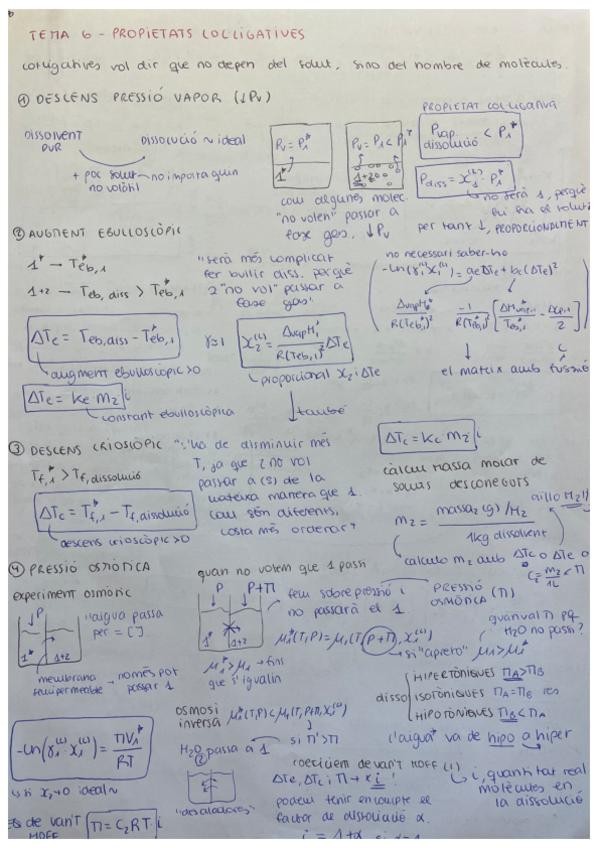 TEMA 6 - PROPIETATS COL·LIGATIVES
col·ligatives vol dir que no depèn del solut, sino del nombre de molècules.
① DESCENS PRESSIÓ VAPOR (↓Pv)
DISSOLVENT PUR
DISSOLUCIÓ ~ ideal
+ poc solut no volàtil
no importa quin
Pv = P₁*
1*
Pv = P₁ < P₁*
1+2
com algunes molec.
"no volen" passar a
fase gas. ↓Pv
PROPIETAT COL·LIGATIVA
Pvap. dissolució < P₁*
Pdiss = x₁⁽ᴸ⁾ · P₁*
no serà 1, perquè
hi ha el solut
per tant ↓, PROPORCIONALMENT
② AUGMENT EBULLOSCÒPIC
1* → Teb,1*
1+2 → Teb, diss > Teb,1*
"serà més complicat
fer bullir diss. perquè
2 "no vol" passar a
fase gas"
no necessari saber-ho
-ln(γ₁⁽ᴸ⁾x₁⁽ᴸ⁾) = aeΔTe + be(ΔTe)²
ΔvapH₁*/R(Teb,1*)²
-1/R(Teb,1*)² [ΔHvap,1/Teb,1* - ΔCp,1/2]
el mateix amb fusió
ΔTe = Teb,diss - Teb,1*
augment ebulloscòpic >0
γ≈1
x₂⁽ᴸ⁾ = ΔvapH₁*/R(Teb,1*)² ΔTe
proporcional x₂ i ΔTe
ΔTe = Ke m₂ i
constant ebulloscòpica
també
ΔTc = Kc m₂ i
③ DESCENS CRIOSCÒPIC
"s'ha de disminuir més
T, ja que 2 no vol
passar a (s) de la
mateixa manera que 1.
com són diferents,
costa més ordenar"
Tf,1* > Tf,dissolució
ΔTc = Tf,1* - Tf,dissolució
descens crioscòpic >0
càlcul massa molar de
soluts desconeguts
aïllo M₂!!
m₂ = massa₂(g)/M₂ / 1kg dissolvent
calculo m₂ amb ΔTc o ΔTe o
C₂ = m₂/1L < π
④ PRESSIÓ OSMÒTICA
experiment osmòtic
P
1*
1+2
"aigua passa
per = [ ]"
membrana
semipermeable
només pot
passar 1
quan no volem que 1 passi
P
P+π
1*
1+2
fem sobrepressió i
no passarà el 1
PRESSIÓ
OSMÒTICA (π)
μ₁*(T,P) = μ₁(T, P+π, x₁⁽ᴸ⁾)
si "apreto"
μ₁* > μ₁ → fins
que s'igualin
quan val π pq
H₂O no passi?
μ₁ > μ₁*
disso
HIPERTÒNIQUES πA > πB
ISOTÒNIQUES πA = πB
HIPOTÒNIQUES πB < πA
l'aigua va de hipo a hiper
osmosi
inversa
μ₁*(T,P) < μ₁(T, P+π, x₁⁽ᴸ⁾)
si π' > π
H₂O passa a 1
"desaladores"
-ln(γ₁⁽ᴸ⁾ · x₁⁽ᴸ⁾) = πV₁*/RT
ideal ~
coeficient de van't HOFF (i)
ΔTe, ΔTc i π → x i !
podem tenir en compte el
factor de dissociació α.
i, quantitat real
molècules en
la dissolució
de VAN'T
HOFF
π = C₂RT · i
i = 1+α